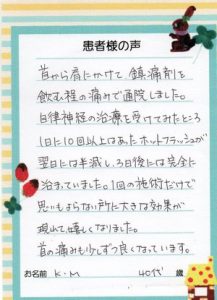 患者様の声
首から肩にかけて 鎮痛剤を
飲む程の痛みで通院しました。
自律神経の治療を受けてみたところ
1日に10回以上はあったホットフラッシュが
翌日には半減し、3日後には完全に
治まっていました。1回の施術だけで
思いもよらない所に大きな効果が
現れて嬉しくなりました。
首の痛みも少しずつ良くなっています。
お名前 K・M 40代 歳